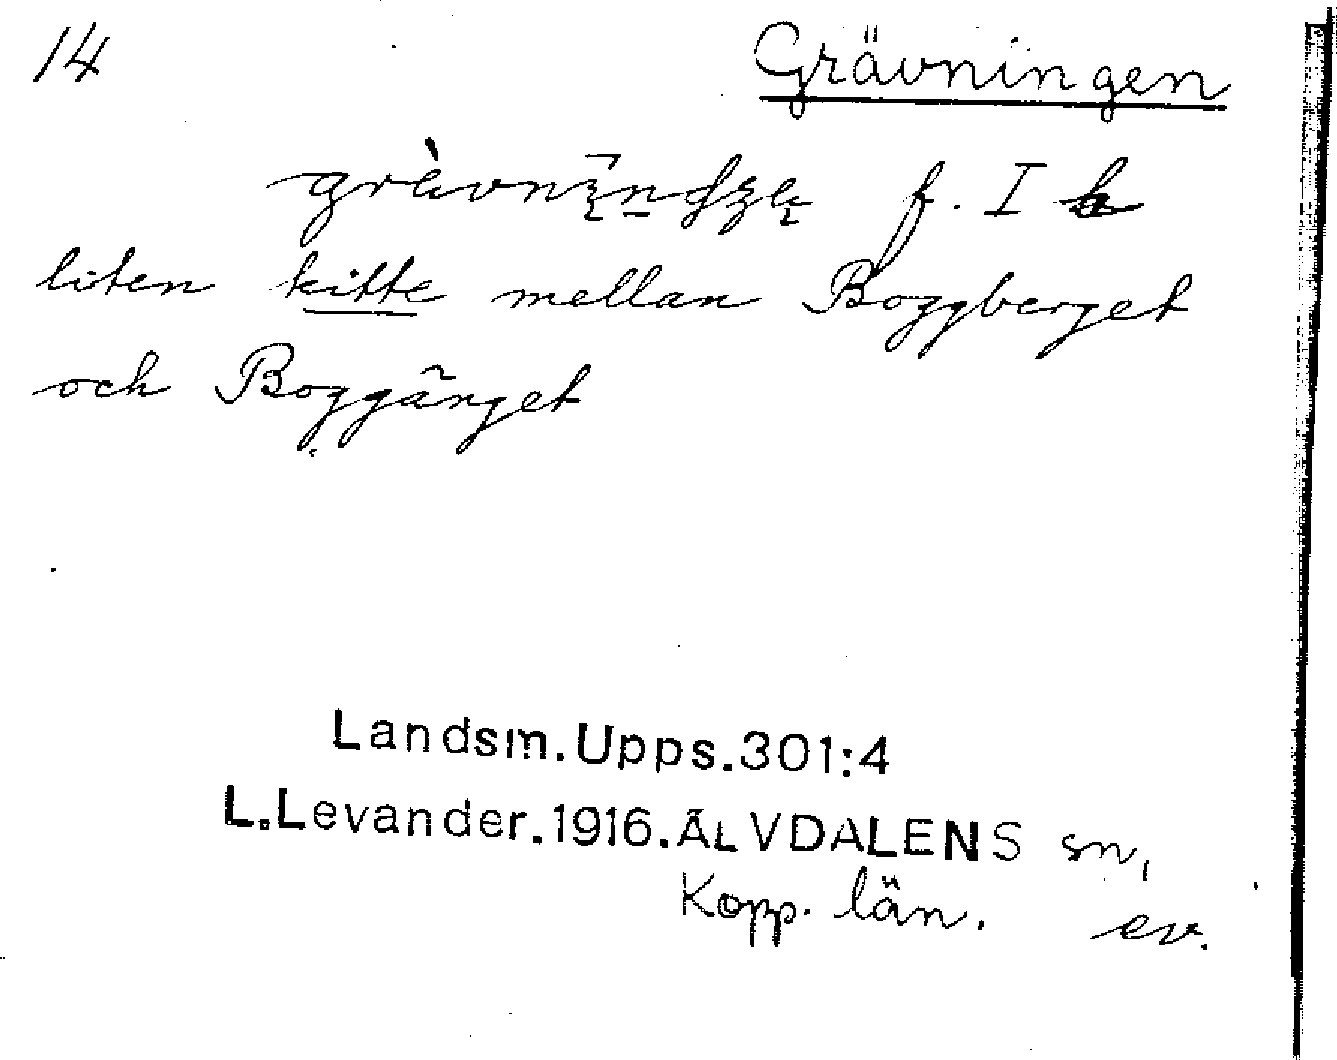 14
Grävningen
f. I
liten kitte mellan Boggberget
och Boggärget
Landsm.Upps.301:4
L.Levander.1916.ÄLVDALENS sn,
Kopp. län. ev.